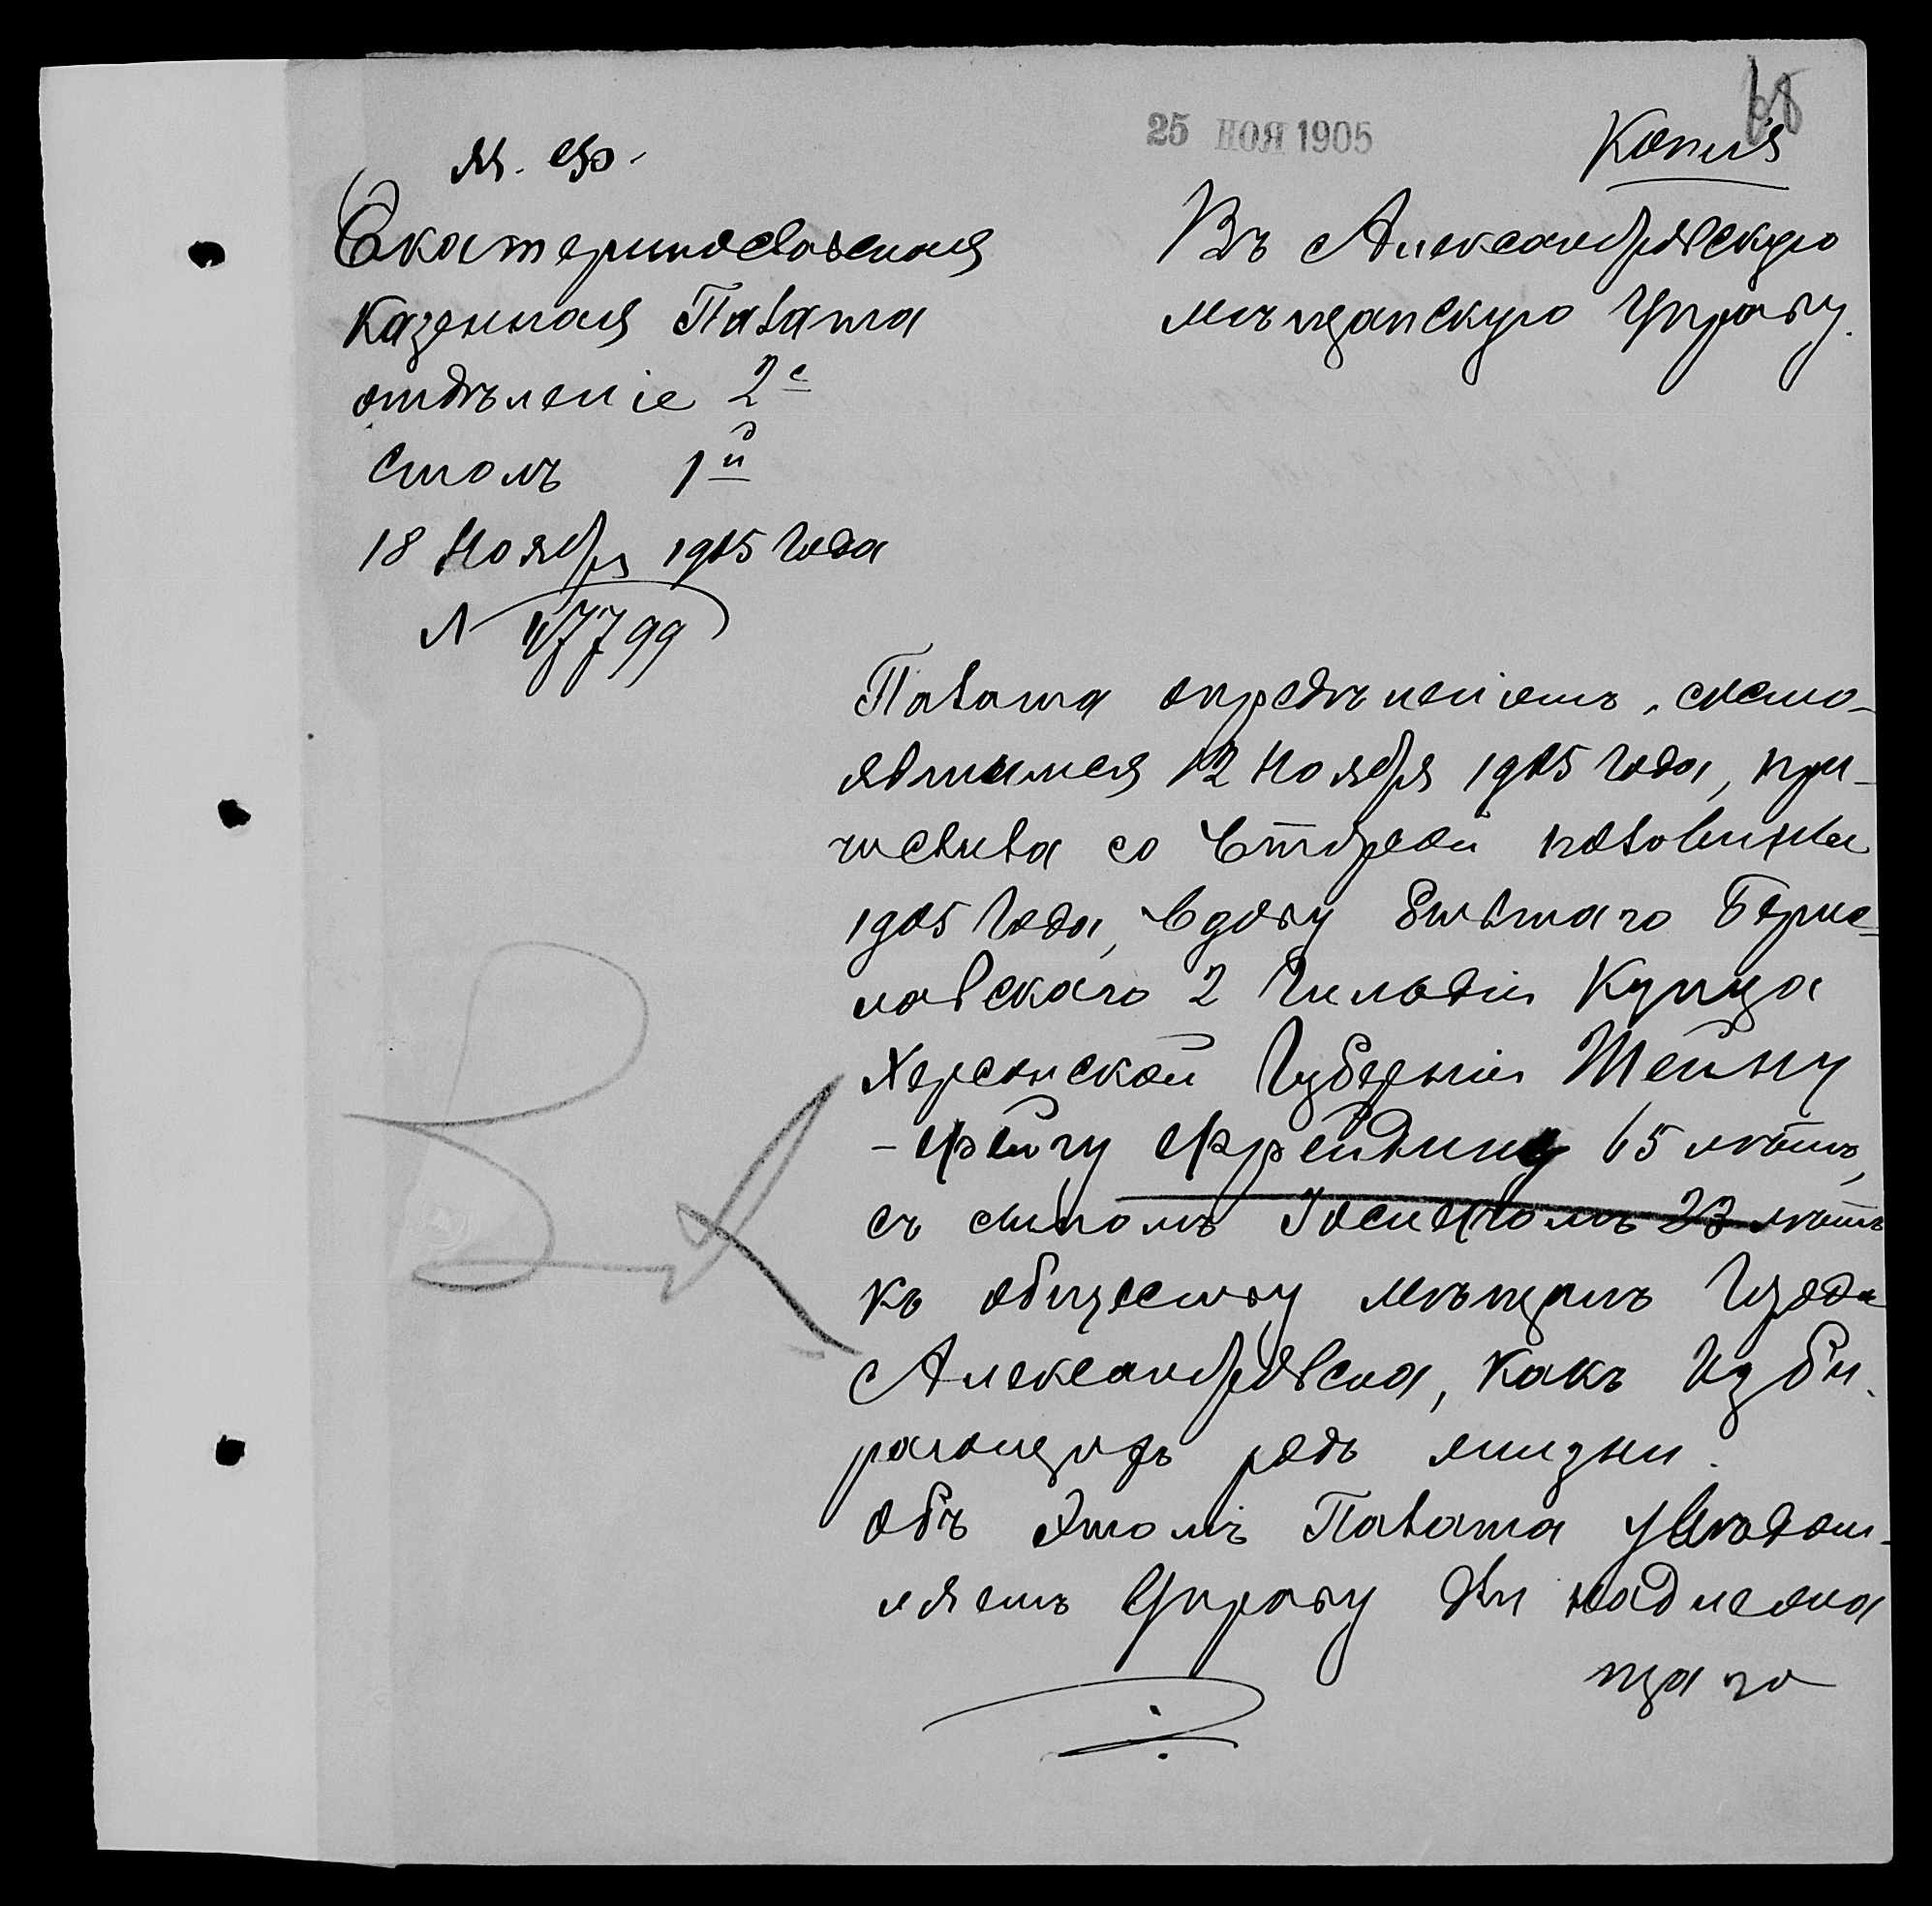 68
25 НОЯ 1905
Копія
М. Ф.
Екатеринославская
Казенная Палата
отдѣленіе 2е
Столъ 1й
18 Ноября 1905 года
№ 47799
Въ Александровскую
мѣщанскую Управу.
Палата опредѣленіемъ, состо-
явшимся 12 Ноября 1905 года, при-
числила со второй половины
1905 года, вдову бывшаго Берис-
лавскаго 2 гильдіи Купца
Херсонской Губерніи Шейну
-Фейгу Фрейдину 65 лѣтъ,
съ сыномъ Іосифомъ 23 лѣтъ
къ обществу мѣщанъ города
Александровска, какъ изби-
рающихъ родъ жизни.
Объ этомъ Палата увѣдом-
ляетъ Управу для надлежа
щаго